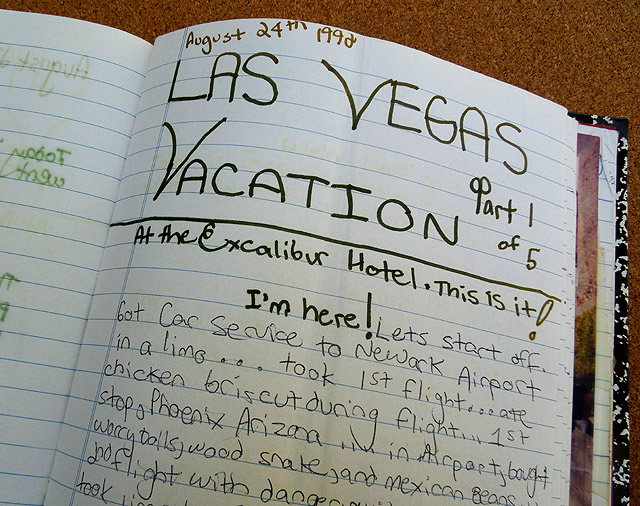 August 24th 1998
LAS VEGAS
VACATION Part 1
of 5
At the Excalibur Hotel. This is it!
I'm here! Lets start off.
Got Car Service to Newark Airport
in a limo... took 1st flight... ate
chicken briscut during flight... 1st
stop, Phoenix Arizona ... in Airport, bought
worry balls, wood snake, and mexican Beans
flight with
took